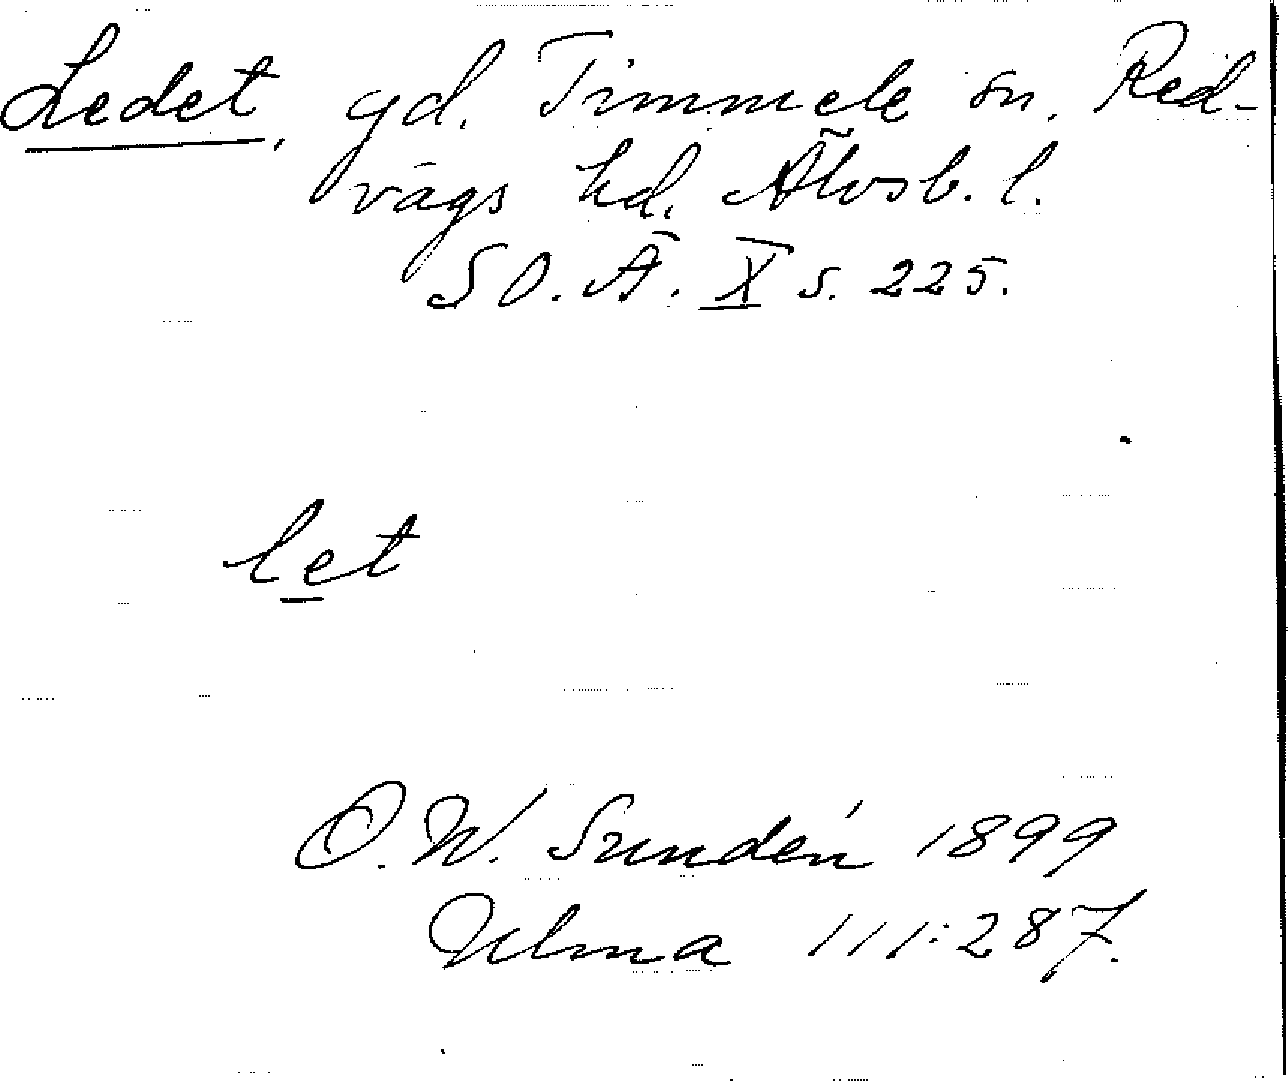 Ledet, gd. Timmele sn. Red-
vägs hd. Älvsb. l.
SO.Ä. X s. 225.
let
O.W. Sundén 1899
Ulma 111:287.